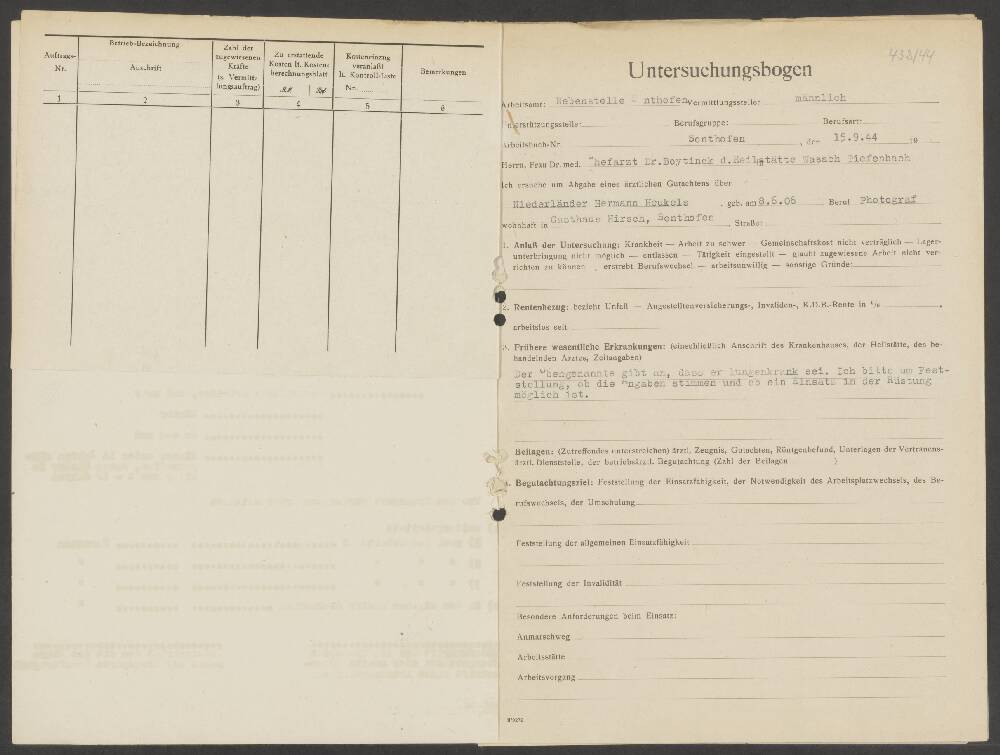 Betrieb-Bezeichnung
Anschrift
Auftrags-
Nr.
Zahl der
zugewiesenen
Kräfte
(s. Vermitt-
lungsauftrag)
Zu erstattende
Kosten lt. Kosten-
berechnungsblatt
RM | Rpf
Kosteneinzug
veranlaßt
lt. Kontrolliste
Nr.
Bemerkungen
1 2 3 4 5 6
432/44
Untersuchungsbogen
Arbeitsamt: Nebenstelle nthofen Vermittlungsstelle: männlich
Unterstützungsstelle: Berufsgruppe: Berufsart:
Arbeitsbuch-Nr. Sonthofen, den 15.9.44 19
Herrn, Frau Dr. med. Chefarzt Dr.Boytinck d.Heilstätte Wasach Tiefenbach
Ich ersuche um Abgabe eines ärztlichen Gutachtens über
Niederländer Hermann Heukels, geb. am 8.6.06 Beruf Photograf
wohnhaft in Gasthaus Hirsch, Sonthofen, Straße:
1. Anlaß der Untersuchung: Krankheit — Arbeit zu schwer — Gemeinschaftskost nicht verträglich — Lager-
unterbringung nicht möglich — entlassen — Tätigkeit eingestellt — glaubt zugewiesene Arbeit nicht ver-
richten zu können, erstrebt Berufswechsel — arbeitsunwillig — sonstige Gründe:
2. Rentenbezug: bezieht Unfall — Angestelltenversicherungs-, Invaliden-, K.D.B.-Rente in %
arbeitslos seit
3. Frühere wesentliche Erkrankungen: (einschließlich Anschrift des Krankenhauses, der Heilstätte, des be-
handelnden Arztes, Zeitangaben)
Der Obengenannte gibt an, dass er lungenkrank sei. Ich bitte um Fest-
stellung, ob die Angaben stimmen und ob ein Einsatz in der Rüstung
möglich ist.
Beilagen: (Zutreffendes unterstreichen) ärztl. Zeugnis, Gutachten, Röntgenbefund, Unterlagen der Vertrauens-
ärztl. Dienststelle, der betriebsärztl. Begutachtung (Zahl der Beilagen )
4. Begutachtungsziel: Feststellung der Einsatzfähigkeit, der Notwendigkeit des Arbeitsplatzwechsels, des Be-
rufswechsels, der Umschulung
Feststellung der allgemeinen Einsatzfähigkeit
Feststellung der Invalidität
Besondere Anforderungen beim Einsatz:
Anmarschweg
Arbeitsstätte
Arbeitsvorgang